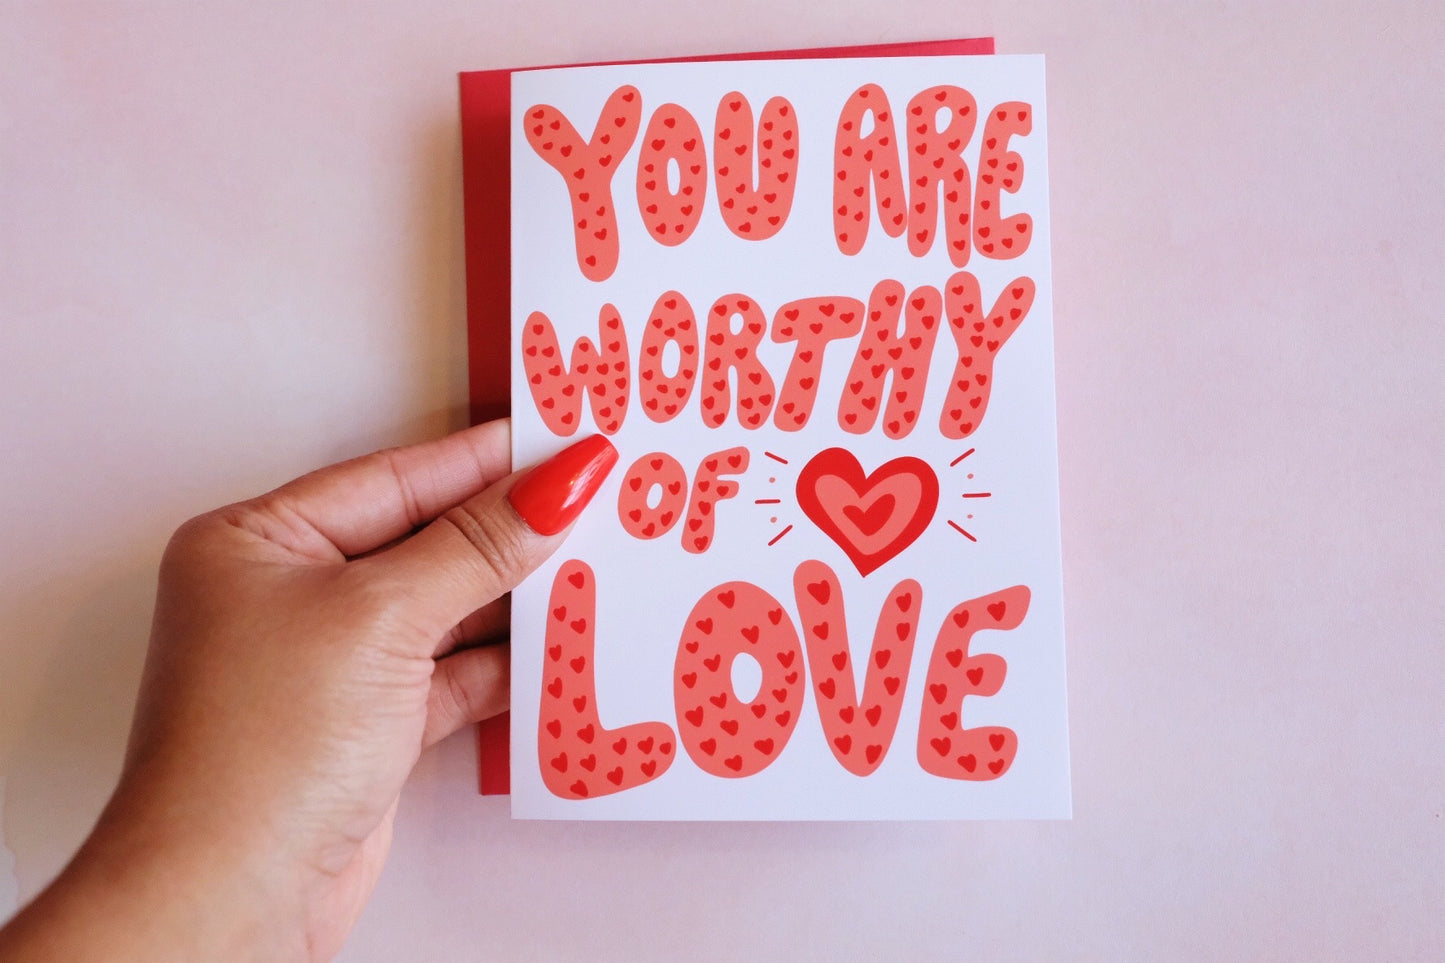 YOU ARE
WORTHY
OF
LOVE